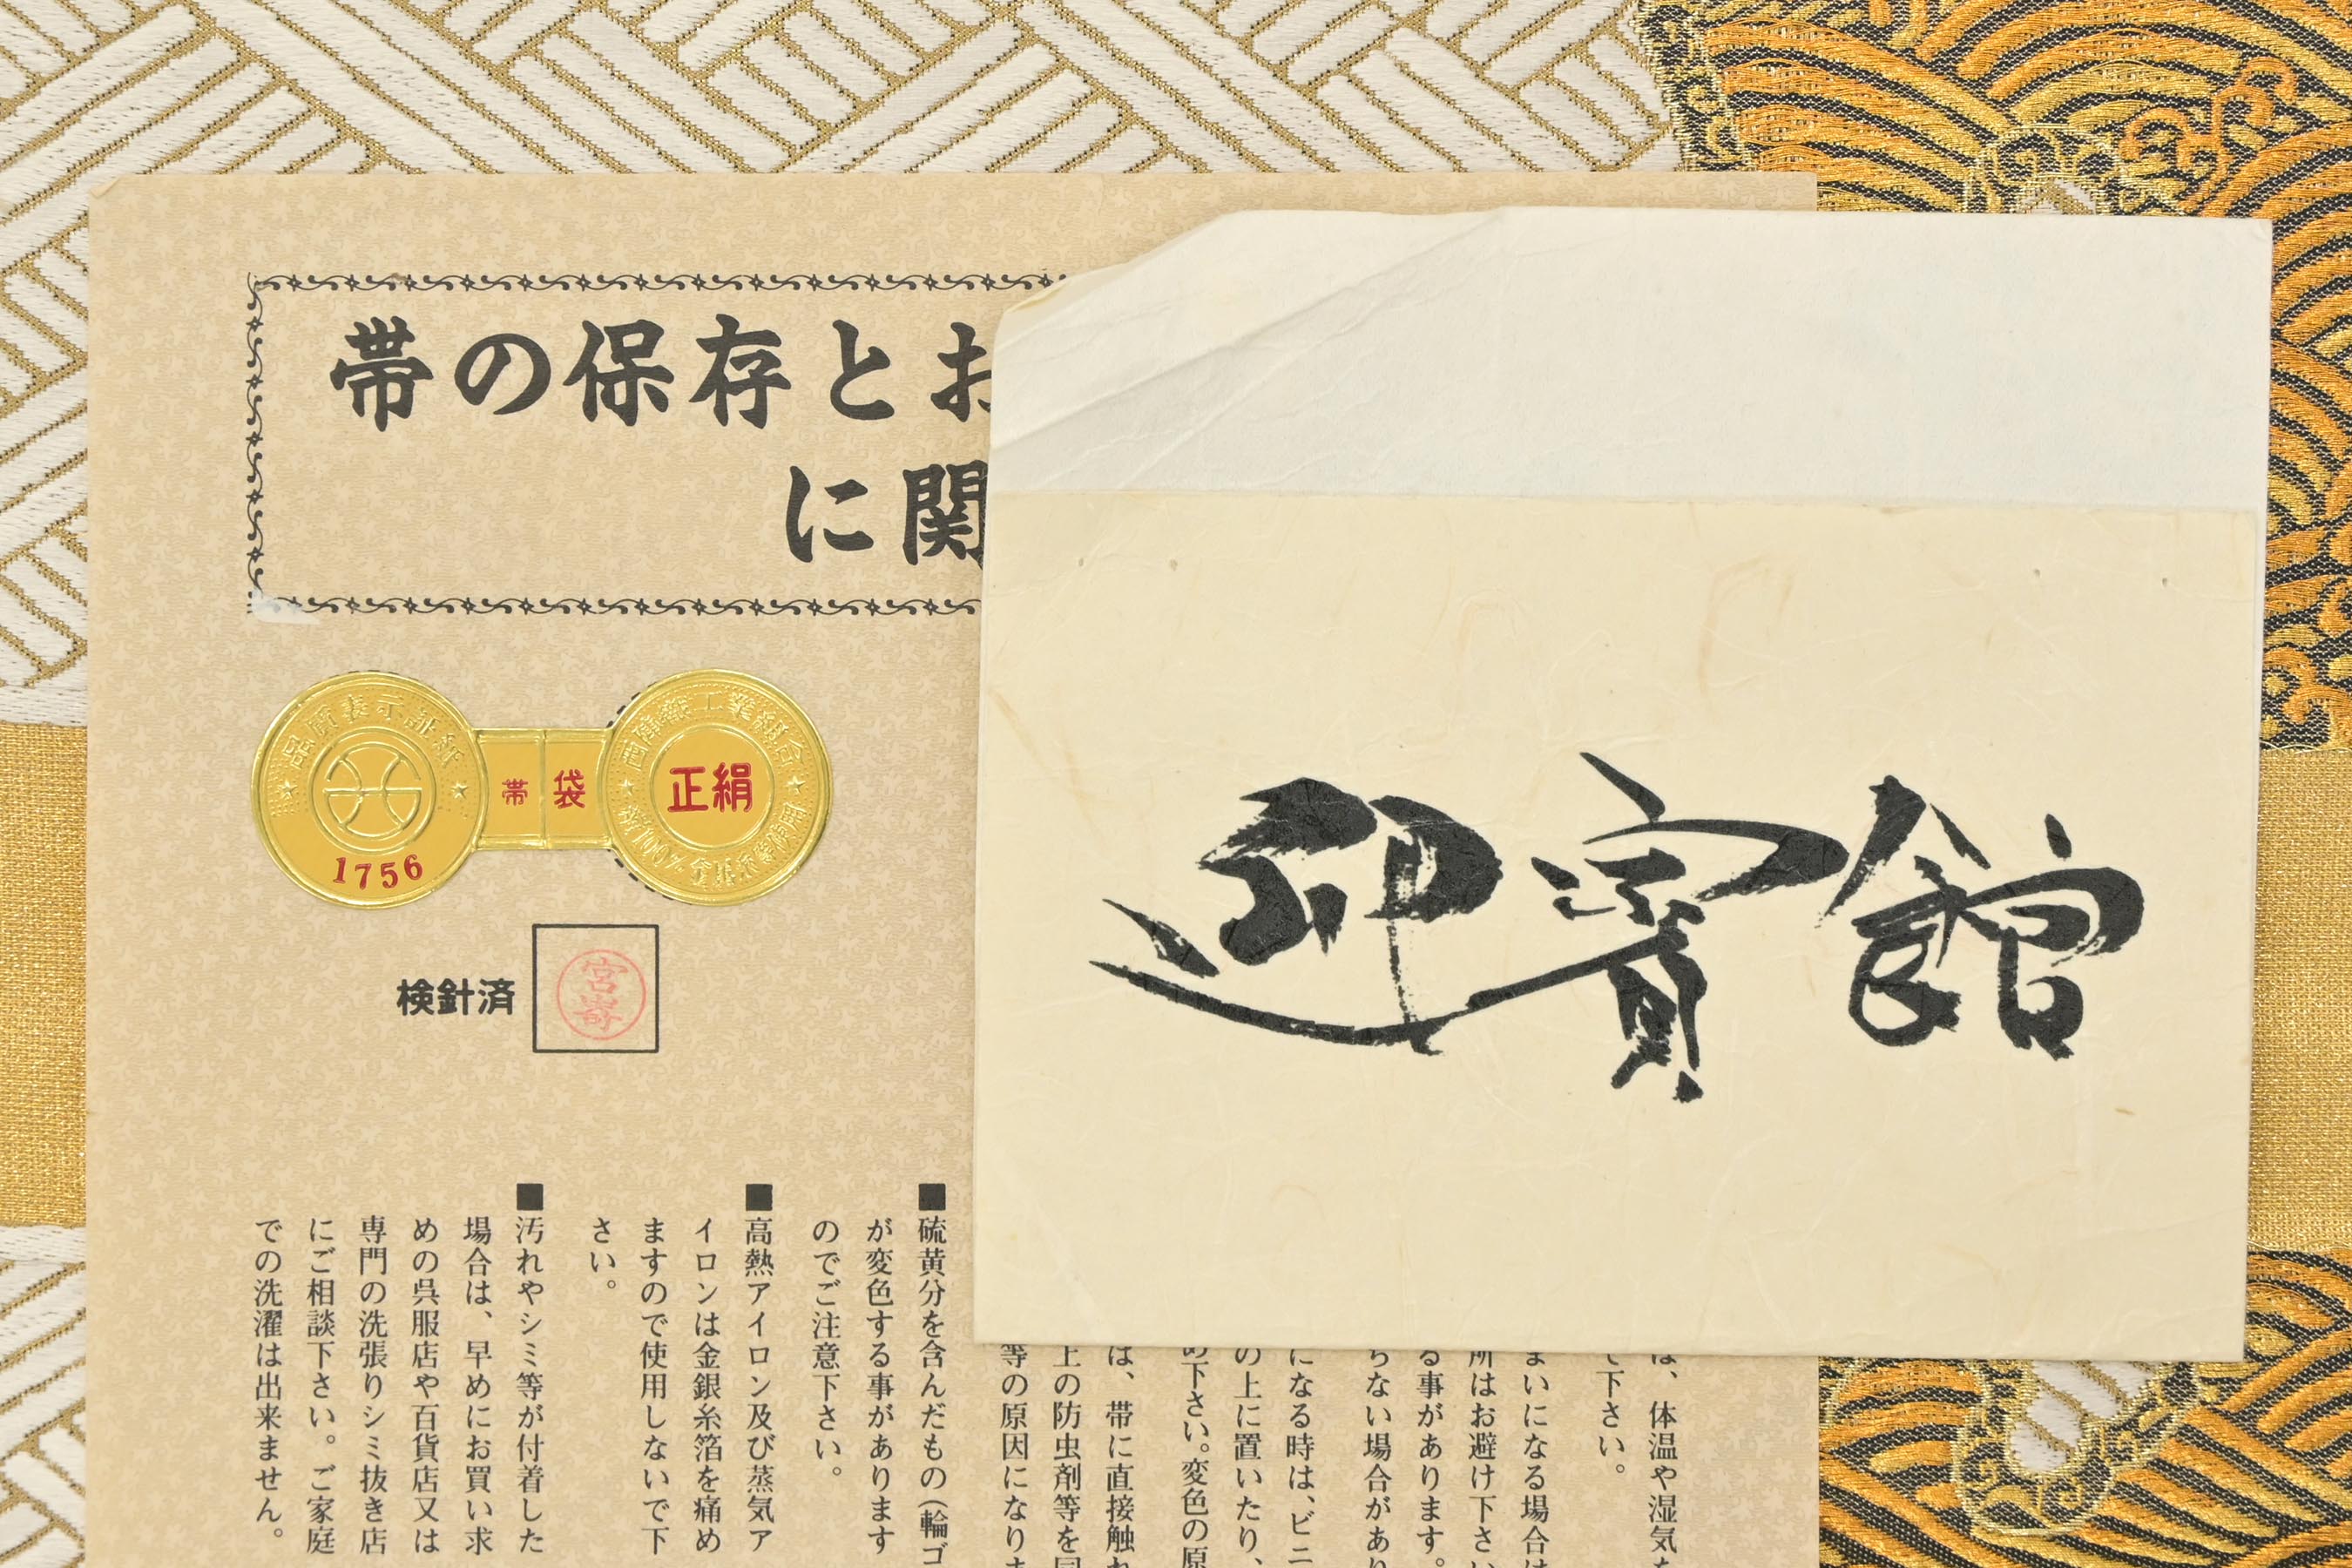 帯の保存とお
に関
品質表示証紙
1756
帯 袋
西陣織工業組合
正絹
検針済
宮嵜
迎賓館
は、体温や湿気を
て下さい。
まいになる場合は
所はお避け下さい
る事があります。
らない場合があり
になる時は、ビニ
の上に置いたり、
め下さい。変色の原
は、帯に直接触れ
上の防虫剤等を同
等の原因になりま
■硫黄分を含んだもの(輪ゴ
が変色する事があります
のでご注意下さい。
■高熱アイロン及び蒸気ア
イロンは金銀糸箔を痛め
ますので使用しないで下
さい。
■汚れやシミ等が付着した
場合は、早めにお買い求
めの呉服店や百貨店又は
専門の洗張りシミ抜き店
にご相談下さい。ご家庭
での洗濯は出来ません。